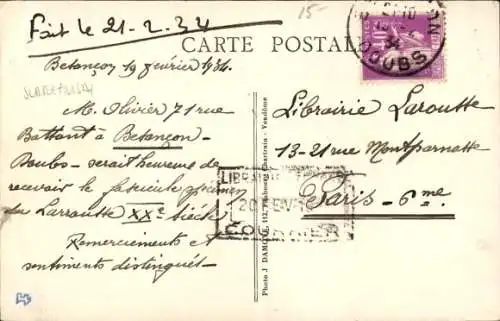 Fait le 21-2.34
15-
CARTE POSTALE
DOUBS
34
Besançon 19 février 1934.
M. Olivier 71 rue
Battant à Besançon-
Doubs - serait heureux de
recevoir le fascicule spécimen
du Larousse XXe siècle
Remerciements et
sentiments distingués-
Librairie Larousse
13-21 rue Montparnasse
Paris - 6me
LIBRAIRIE
20 FEVR
COURRIER
Photo J DAMOY, 112, Faubourg Chartrain - Vendôme